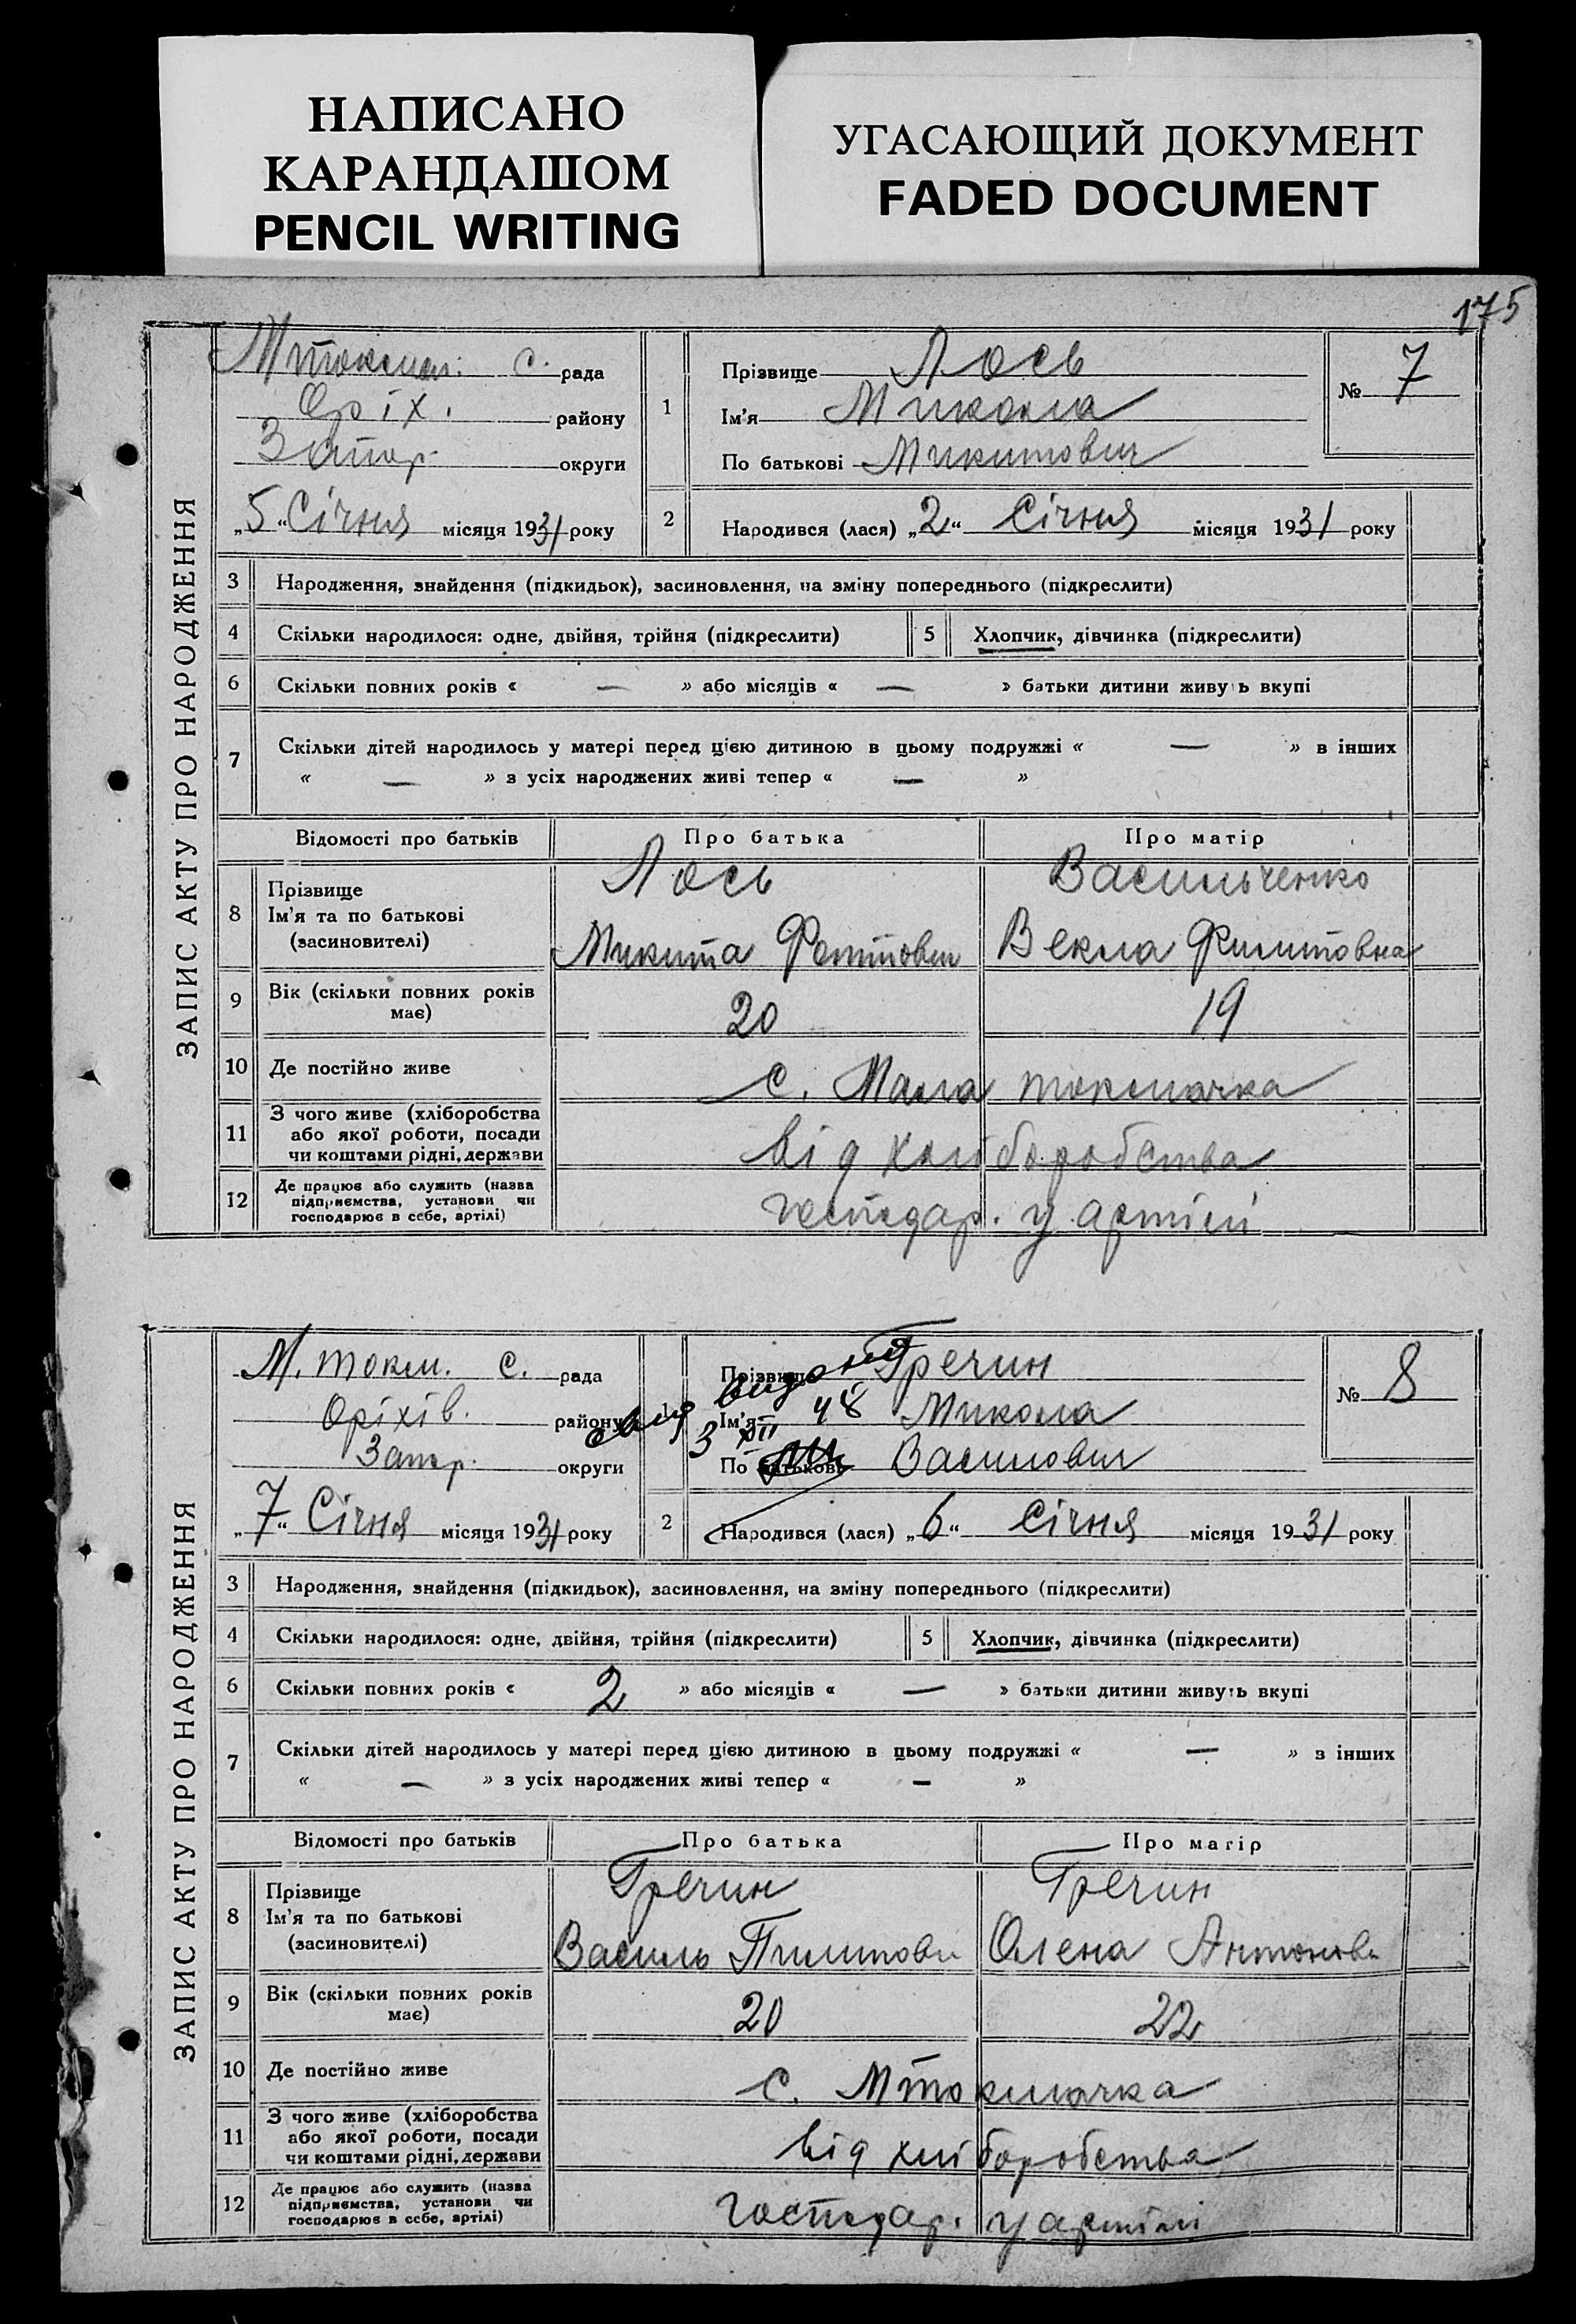 НАПИСАНО
КАРАНДАШОМ
PENCIL WRITING
УГАСАЮЩИЙ ДОКУМЕНТ
FADED DOCUMENT
175
ЗАПИС АКТУ ПРО НАРОДЖЕННЯ
Мтокмач. с. рада
Оріх. району
Запор. округи
„5“ Січня місяця 1931 року
1 Прізвище Лось
Ім’я Микола
По батькові Микитович
№ 7
2 Народився (лася) „2“ Січня місяця 1931 року
3 Народження, знайдення (підкидьок), засиновлення, на зміну попереднього (підкреслити)
4 Скільки народилося: одне, двійня, трійня (підкреслити) 5 Хлопчик, дівчинка (підкреслити)
6 Скільки повних років « — » або місяців « — » батьки дитини живуть вкупі
7 Скільки дітей народилось у матері перед цією дитиною в цьому подружжі « — » в інших
« — » з усіх народжених живі тепер « — »
Відомості про батьків Про батька Про матір
8 Прізвище
Ім’я та по батькові
(засиновителі)
Лось
Микита
Васильченко
Векла Филитовна
9 Вік (скільки повних років
має)
20 19
10 Де постійно живе с. Мала токмачка
11 З чого живе (хліборобства
або якої роботи, посади
чи коштами рідні, держави
від хліборобства
12 Де працює або служить (назва
підприємства, установи чи
господарює в себе, артілі)
господар. у артілі
ЗАПИС АКТУ ПРО НАРОДЖЕННЯ
М. токм. с. рада
Оріхів. району
Запор. округи
„7“ Січня місяця 1931 року
1 Прізвище Гречин
Ім’я Микола
По батькові Василович
3 XII 48
№ 8
2 Народився (лася) „6“ Січня місяця 1931 року
3 Народження, знайдення (підкидьок), засиновлення, на зміну попереднього (підкреслити)
4 Скільки народилося: одне, двійня, трійня (підкреслити) 5 Хлопчик, дівчинка (підкреслити)
6 Скільки повних років « 2 » або місяців « — » батьки дитини живуть вкупі
7 Скільки дітей народилось у матері перед цією дитиною в цьому подружжі « — » в інших
« — » з усіх народжених живі тепер « — »
Відомості про батьків Про батька Про матір
8 Прізвище
Ім’я та по батькові
(засиновителі)
Гречин
Василь
Гречин
Олена Антонов
9 Вік (скільки повних років
має)
20 22
10 Де постійно живе с. Мтокмачка
11 З чого живе (хліборобства
або якої роботи, посади
чи коштами рідні, держави
від хліборобства
12 Де працює або служить (назва
підприємства, установи чи
господарює в себе, артілі)
господар. у артілі